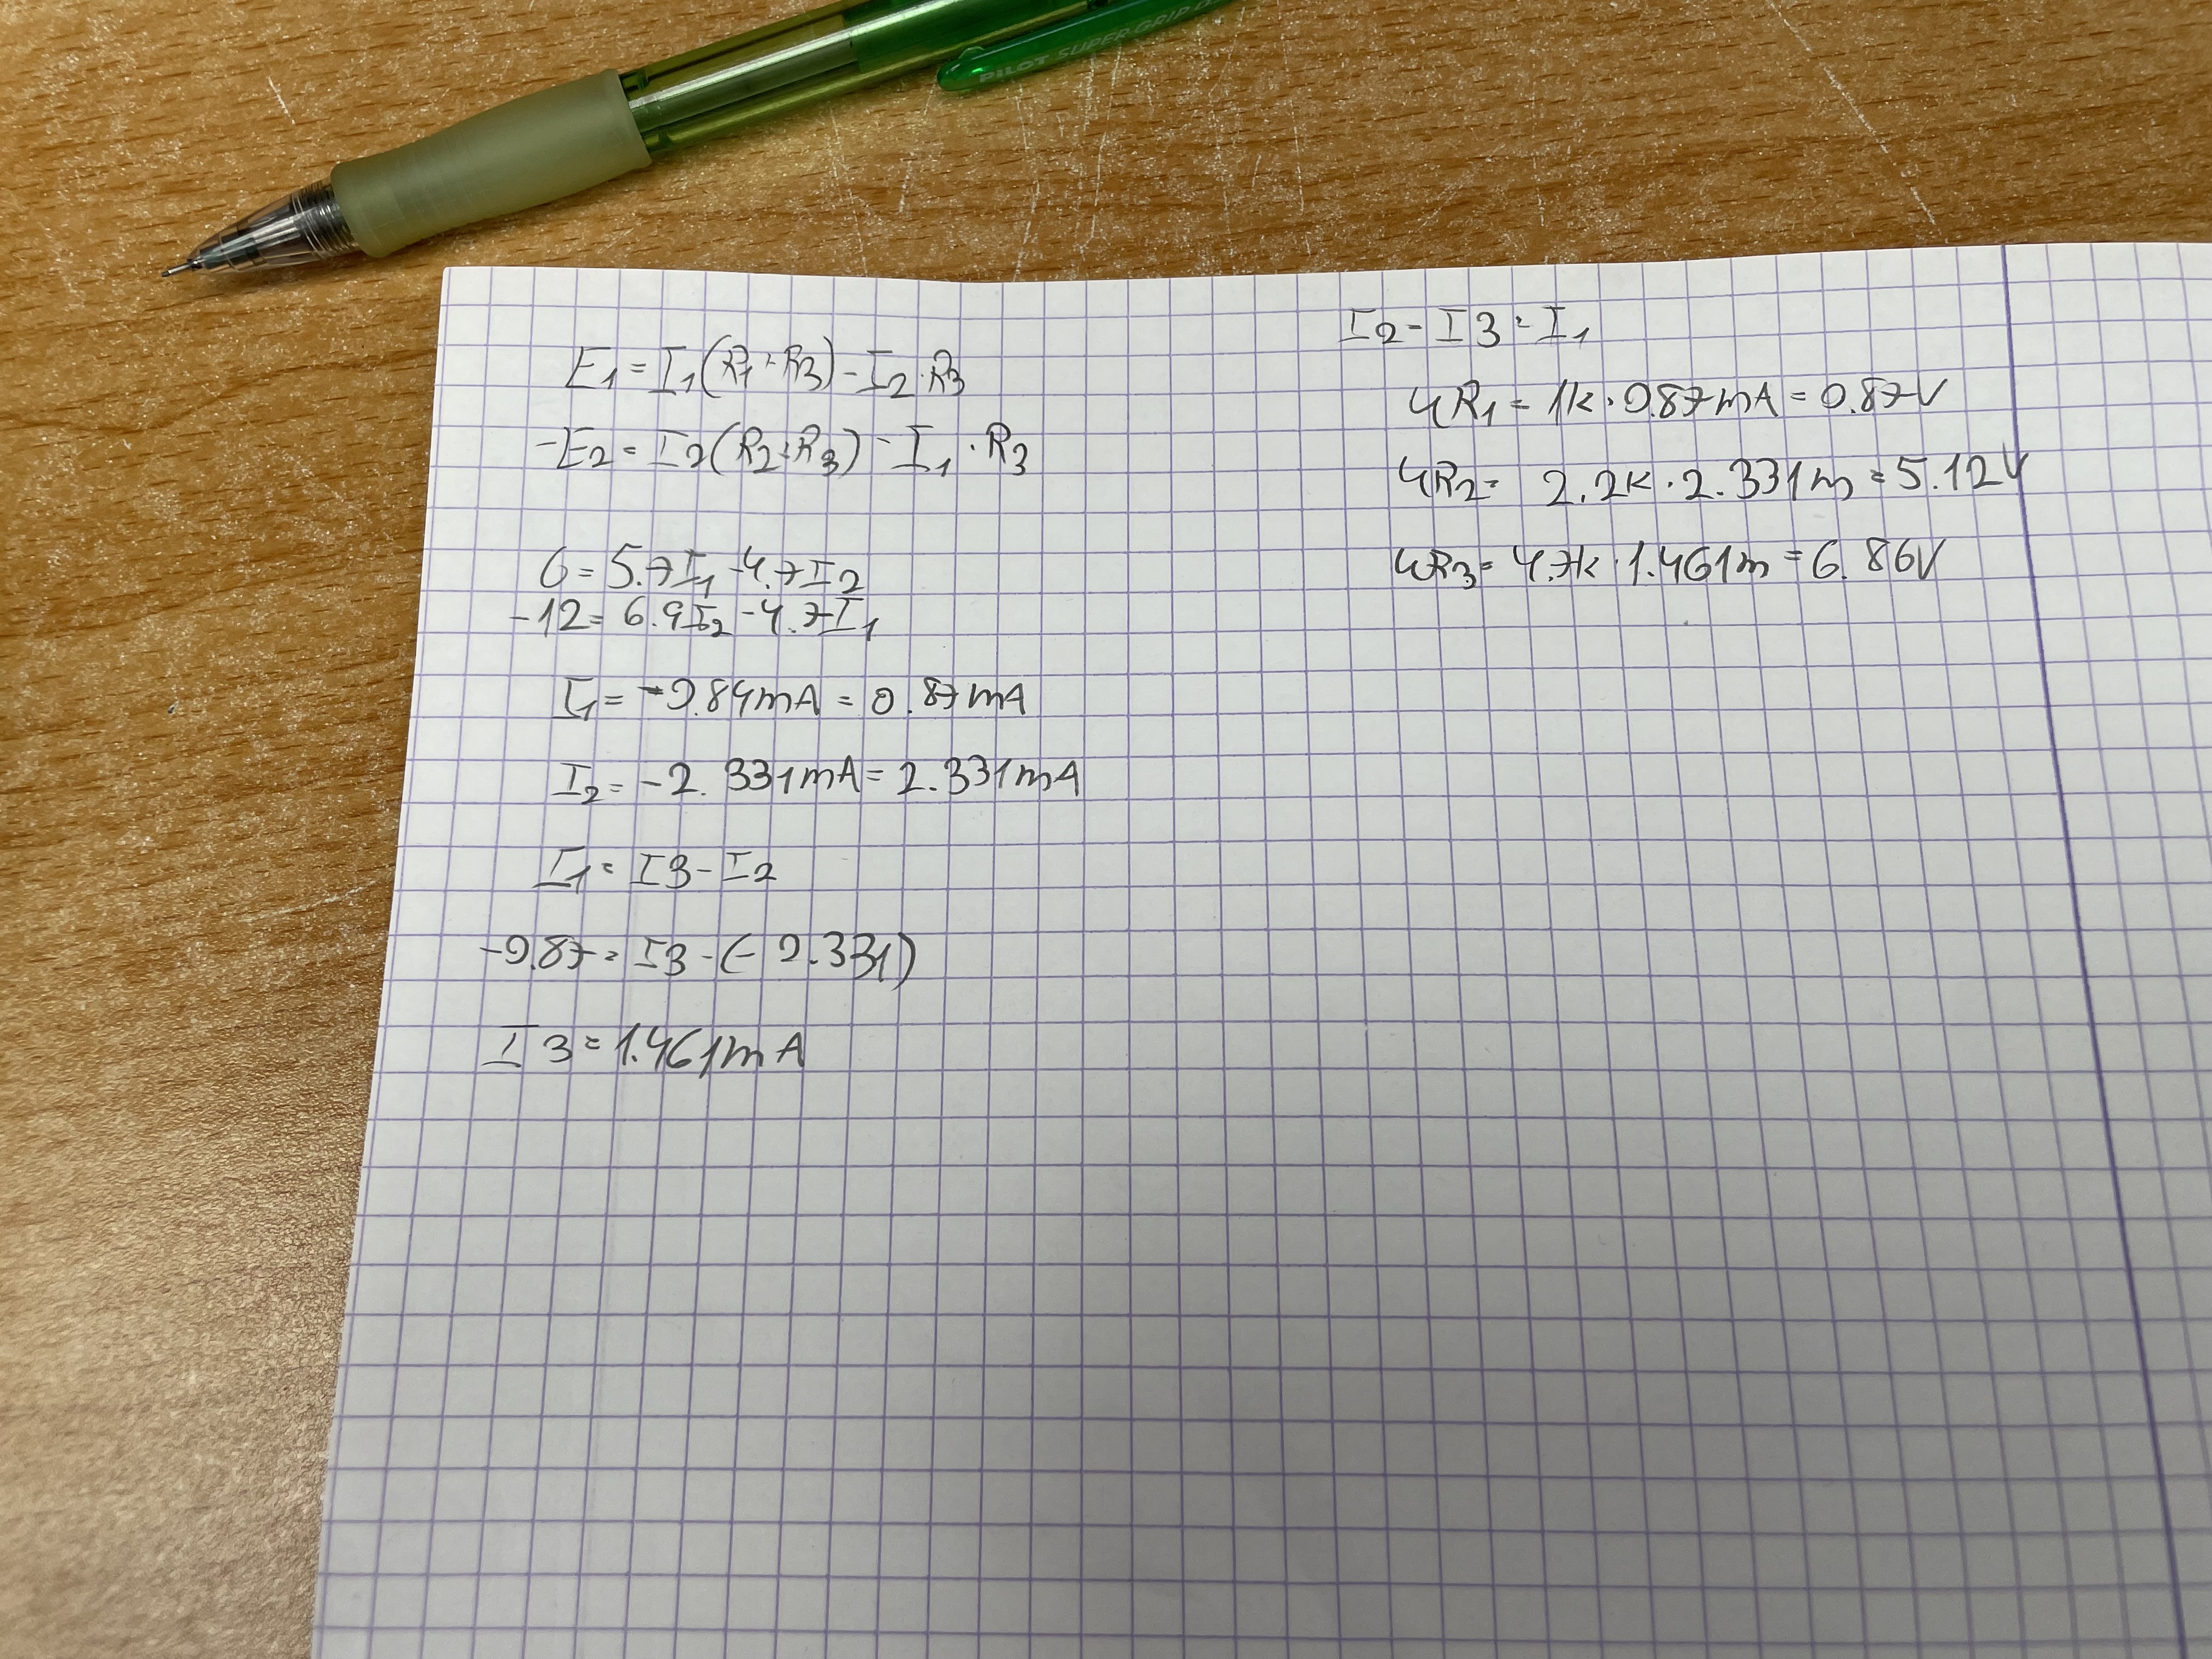 E1 = I1(R1+R3) - I2·R3
-E2 = I2(R2+R3) - I1·R3
6 = 5.7I1 - 4.7I2
-12 = 6.9I2 - 4.7I1
I1 = -0.87mA = 0.87mA
I2 = -2.331mA = 2.331mA
I1 = I3 - I2
-0.87 = I3 - (-2.331)
I3 = 1.461mA
I2 = I3 - I1
UR1 = 1k·0.87mA = 0.87V
UR2 = 2.2k·2.331m = 5.12V
UR3 = 4.7k·1.461m = 6.86V
PILOT SUPER GRIP